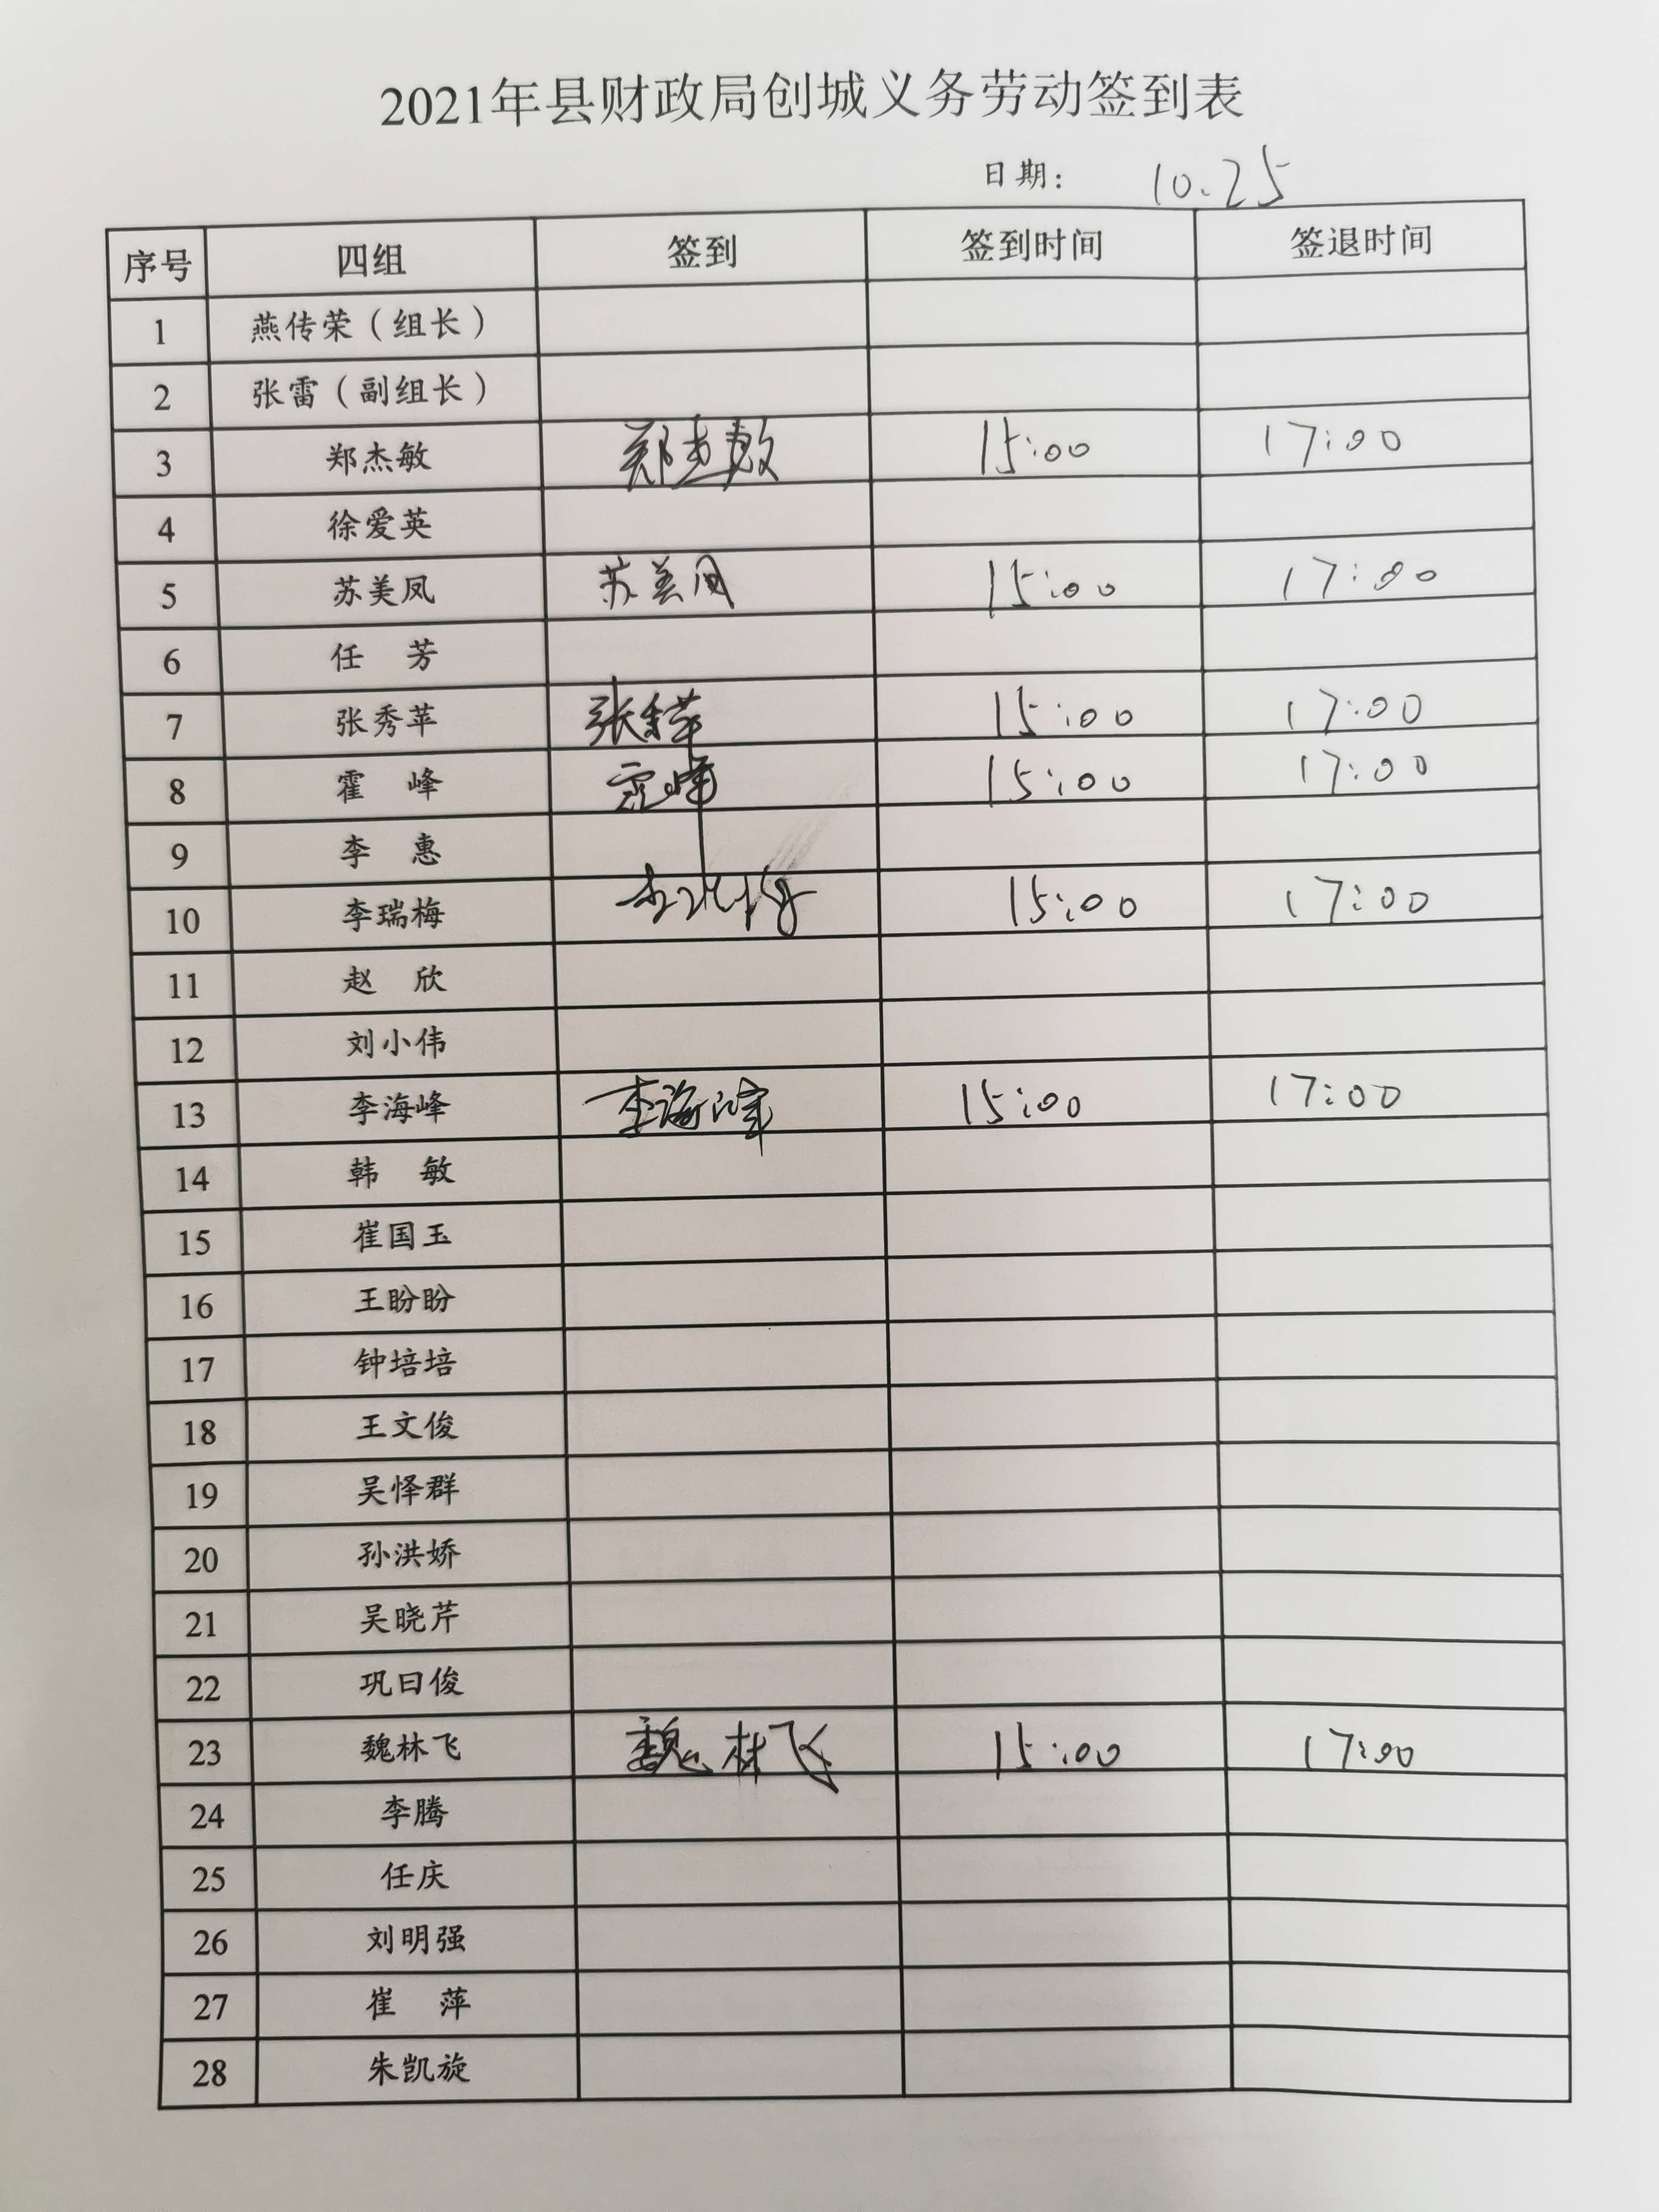 2021年县财政局创城义务劳动签到表
日期： 10.25
序号 四组 签到 签到时间 签退时间
1 燕传荣（组长）
2 张雷（副组长）
3 郑杰敏 郑杰敏 15:00 17:00
4 徐爱英
5 苏美凤 苏美凤 15:00 17:00
6 任 芳
7 张秀苹 张秀苹 15:00 17:00
8 霍 峰 霍峰 15:00 17:00
9 李 惠
10 李瑞梅 李瑞梅 15:00 17:00
11 赵 欣
12 刘小伟
13 李海峰 李海峰 15:00 17:00
14 韩 敏
15 崔国玉
16 王盼盼
17 钟培培
18 王文俊
19 吴怿群
20 孙洪娇
21 吴晓芹
22 巩曰俊
23 魏林飞 魏林飞 15:00 17:00
24 李腾
25 任庆
26 刘明强
27 崔 萍
28 朱凯旋